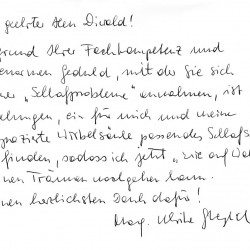 geehrter Herr Diwald!
grund Ihrer Fachkompetenz und
Geduld, mit der Sie sich
"Schlafprobleme" annahmen, ist
gelungen, ein für mich und meine
Wirbelsäule passendes Schlafs
finden, sodass ich jetzt "wie auf Wol
Träumen nachgehen kann.
nen herzlichsten Dank dafür!
Mag. Ulrike